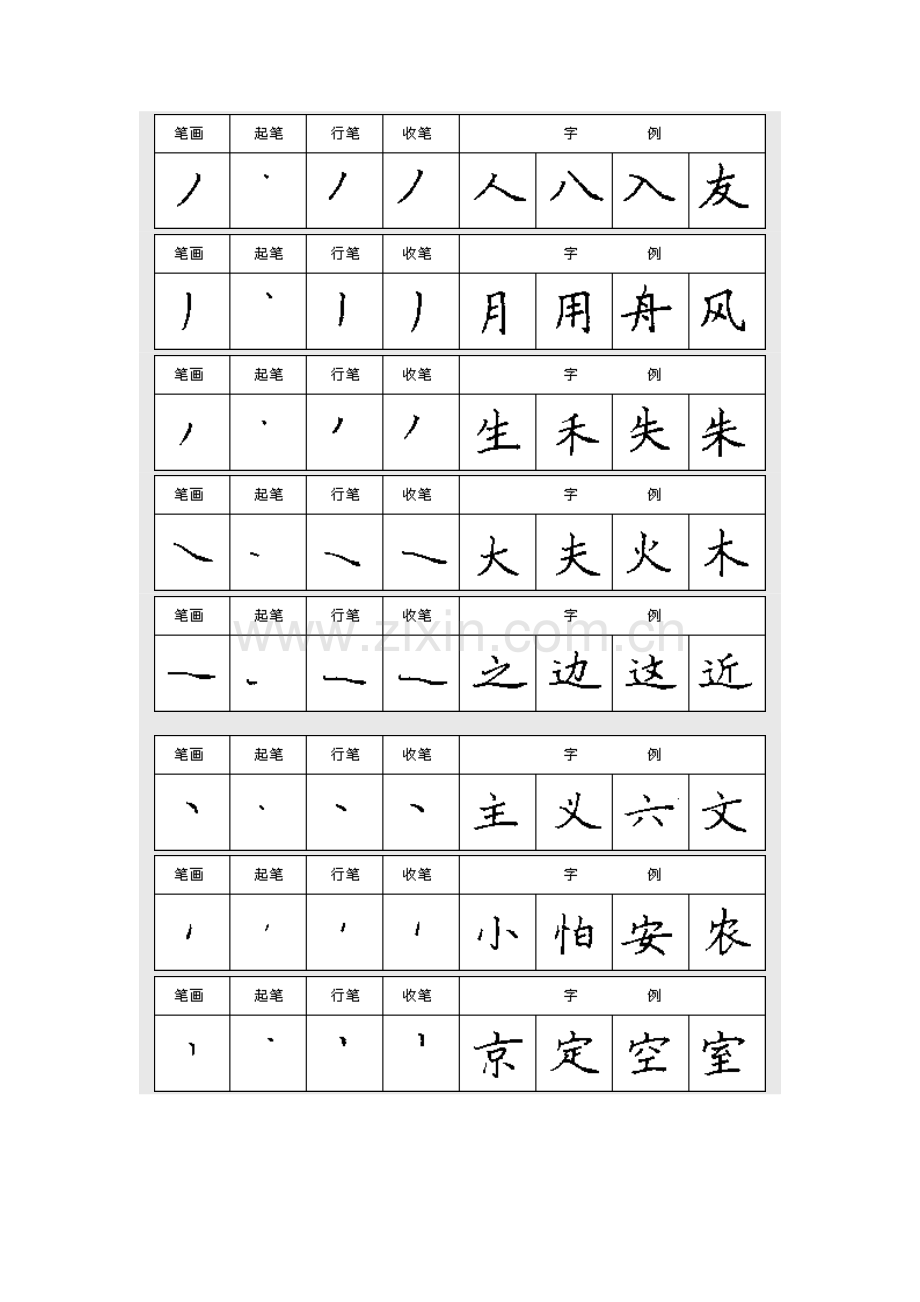 笔画 起笔 行笔 收笔 字 例
丿 丶 丿 丿 人 八 入 友
笔画 起笔 行笔 收笔 字 例
月 用 舟 风
笔画 起笔 行笔 收笔 字 例
生 禾 失 朱
笔画 起笔 行笔 收笔 字 例
大 夫 火 木
笔画 起笔 行笔 收笔 字 例
www.zixin.com.cn
之 边 这 近
笔画 起笔 行笔 收笔 字 例
主 义 六 文
笔画 起笔 行笔 收笔 字 例
小 怕 安 农
笔画 起笔 行笔 收笔 字 例
京 定 空 室